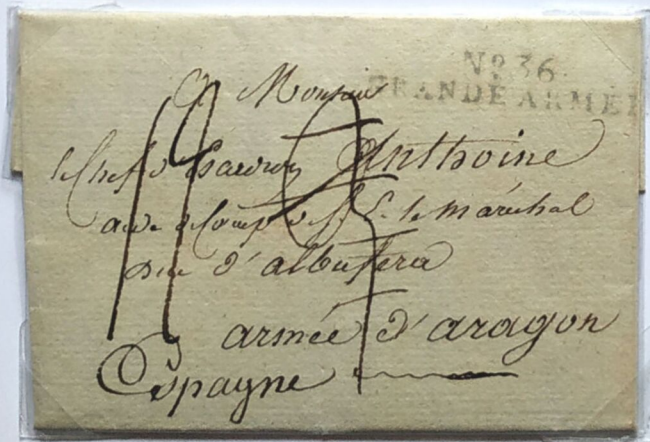 Nº 36.
GRANDE ARMÉE
A Monsieur
le Chef d'Escadron Anthoine
aide de Camp de S. E. le maréchal
duc d'albufera
armée d'aragon
Espagne